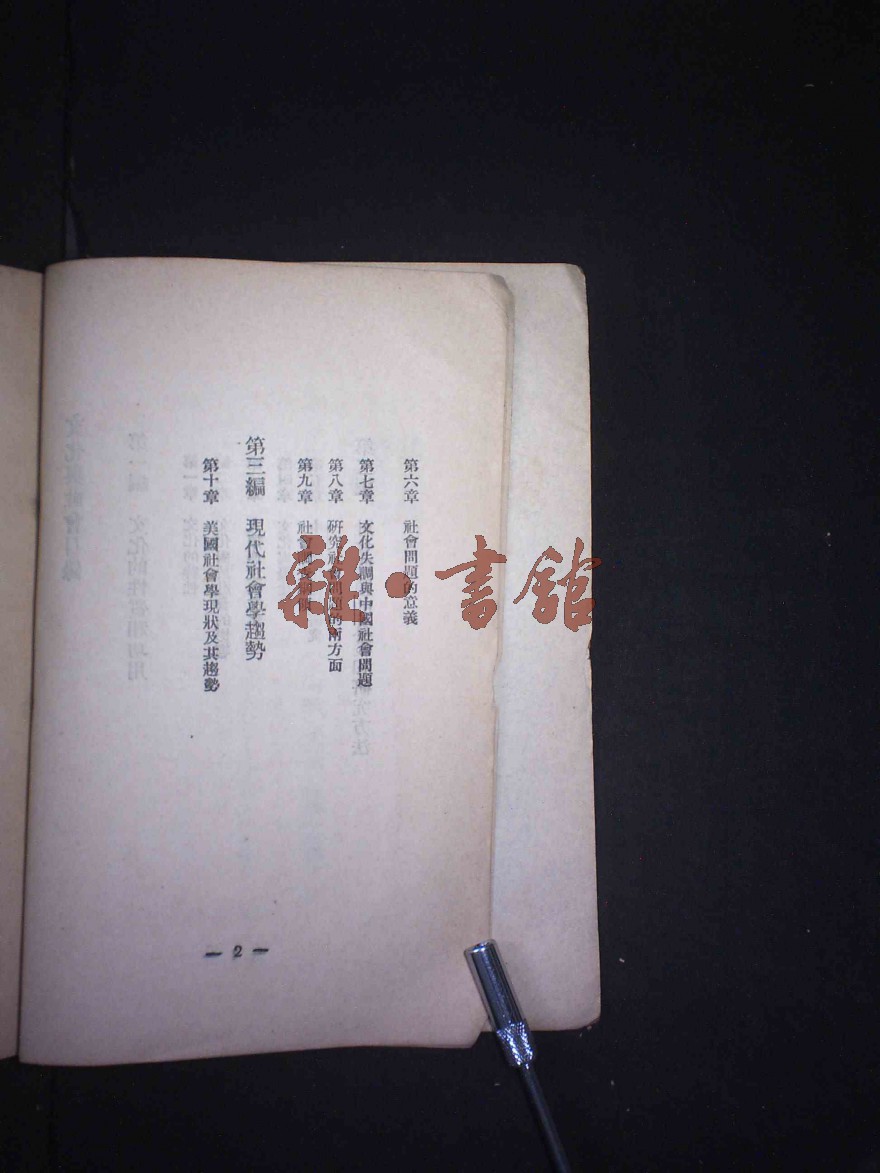 第六章 社會問題的意義
第七章 文化失調與中國社會問題
第八章 研究社會問題的兩方面
第九章 社會
第三編 現代社會學趨勢
第十章 美國社會學現狀及其趨勢
— 2 —
雜·書館